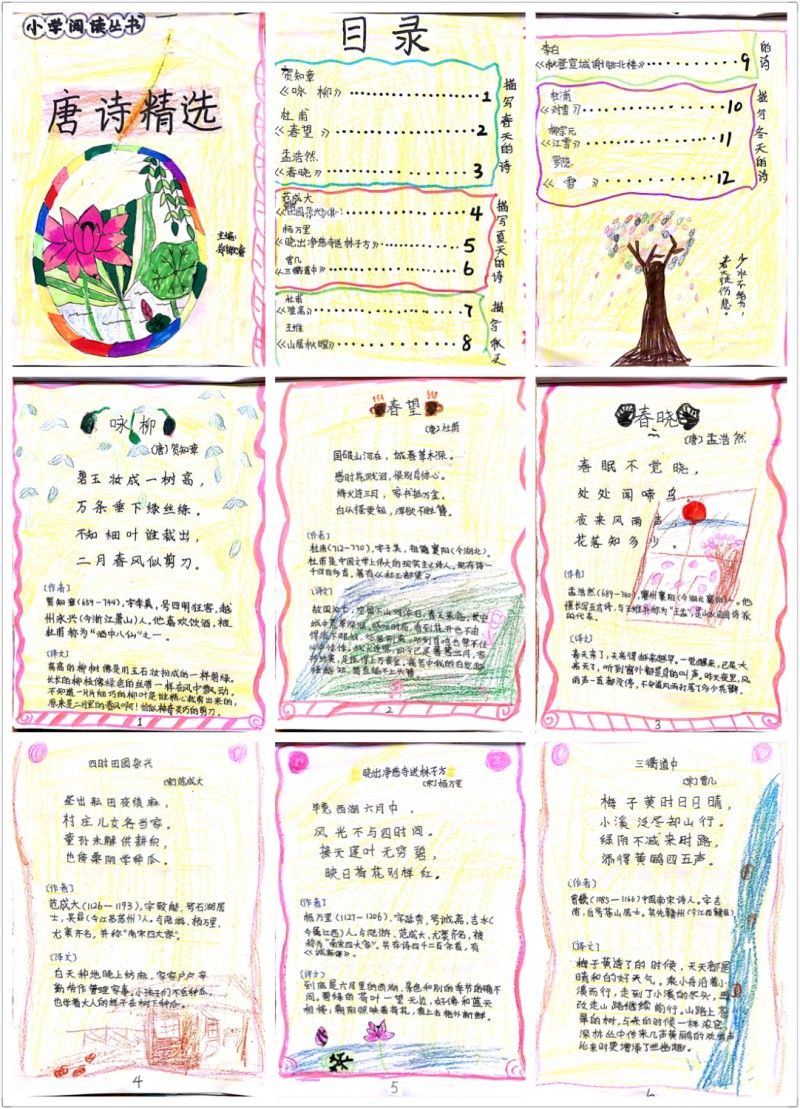 小学阅读丛书
唐诗精选
主编:
目录
贺知章
《咏 柳》 1
杜 甫
《春望》 2
孟浩然
《春晓》 3
描写春天的诗
范成大
4
杨万里
《晓出净慈寺送林子方》 5
曾几
《三衢道中》 6
描写夏天的诗
杜甫
《登高》 7
王维
《山居秋暝》 8
描写秋天
的诗
李白
《秋登宣城谢朓北楼》 9
杜甫
《对雪》 10
柳宗元
《江雪》 11
罗隐
《 雪 》 12
描写冬天的诗
少壮不努力,
老大徒伤悲。
咏柳
(唐)贺知章
碧玉妆成一树高,
万条垂下绿丝绦。
不知细叶谁裁出,
二月春风似剪刀。
(作者)
贺知章(659-744),字季真,号四明狂客,越
州永兴(今浙江萧山)人。他喜欢饮酒,被
杜甫称为“酒中八仙”之一。
(译文)
高高的柳树像是用玉石妆扮成的一样碧绿。
长长的柳枝像绿色的丝带一样在风中飘动。
不知道一片片细巧的柳叶是谁精心裁剪出来的,
原来是二月里的春风啊!恰似神奇灵巧的剪刀。
1
春望
(唐)杜甫
国破山河在,城春草木深。
感时花溅泪,恨别鸟惊心。
烽火连三月,家书抵万金。
白头搔更短,浑欲不胜簪。
(作者)
杜甫(712-770),字子美,祖籍襄阳(今湖北)。
杜甫是中国文学上伟大的现实主义诗人。现存诗一
千四百多首。著有《杜工部集》。
(译文)
2
春晓
(唐)孟浩然
春眠不觉晓,
处处闻啼鸟
夜来风雨声
花落知多少。
(作者)
孟浩然(689-740),襄州襄阳(今湖北襄阳)人。他
擅长写五言诗,与王维并称为“王孟”,是山水田园诗派
的代表。
(译文)
春天来了,天亮得越来越早。一觉醒来,已是大
亮天了,听到窗外都是鸟的叫声。昨天夜里,风
雨声一直都没停,不知道风雨打落了多少花瓣。
3
四时田园杂兴
(宋)范成大
昼出耘田夜绩麻,
村庄儿女各当家。
童孙未解供耕织,
也傍桑阴学种瓜。
(作者)
范成大(1126-1193),字致能,号石湖居
士,吴县(今江苏苏州)人。与陆游、杨万里、
尤袤齐名,并称“南宋四大家”。
(译文)
白天种地晚上纺麻,家家户户辛
勤劳作管理家务。小孩子们不会种瓜,
也学着大人的样子在树下种瓜。
4
晓出净慈寺送林子方
(宋)杨万里
毕竟西湖六月中,
风光不与四时同。
接天莲叶无穷碧,
映日荷花别样红。
(作者)
杨万里(1127-1206),字廷秀,号诚斋,吉水(
今属江西)人。与陆游、范成大、尤袤齐名,被
称为“南宋四大家”。共存诗四千二百余首,有
《诚斋集》。
(译文)
到底是六月里的西湖,景色和别的季节的确不
同。碧绿的荷叶一望无边,好像和蓝天
相接;朝阳照映着荷花,看上去格外新鲜。
5
三衢道中
(宋)曾几
梅子黄时日日晴,
小溪泛尽却山行。
绿阴不减来时路,
添得黄鹂四五声。
(作者)
曾几(1085-1166)中国南宋诗人。字吉
甫,自号茶山居士。其先赣州(今江西赣县)
(译文)
梅子黄透了的时候,天天都是
晴和的好天气,乘小舟沿着小
溪而行,走到了小溪的尽头,再
改走山路继续前行。山路上苍
翠的树,与来的时候一样浓密
深林丛中传来几声黄鹂的欢鸣声
比来时更增添了些幽趣。
6